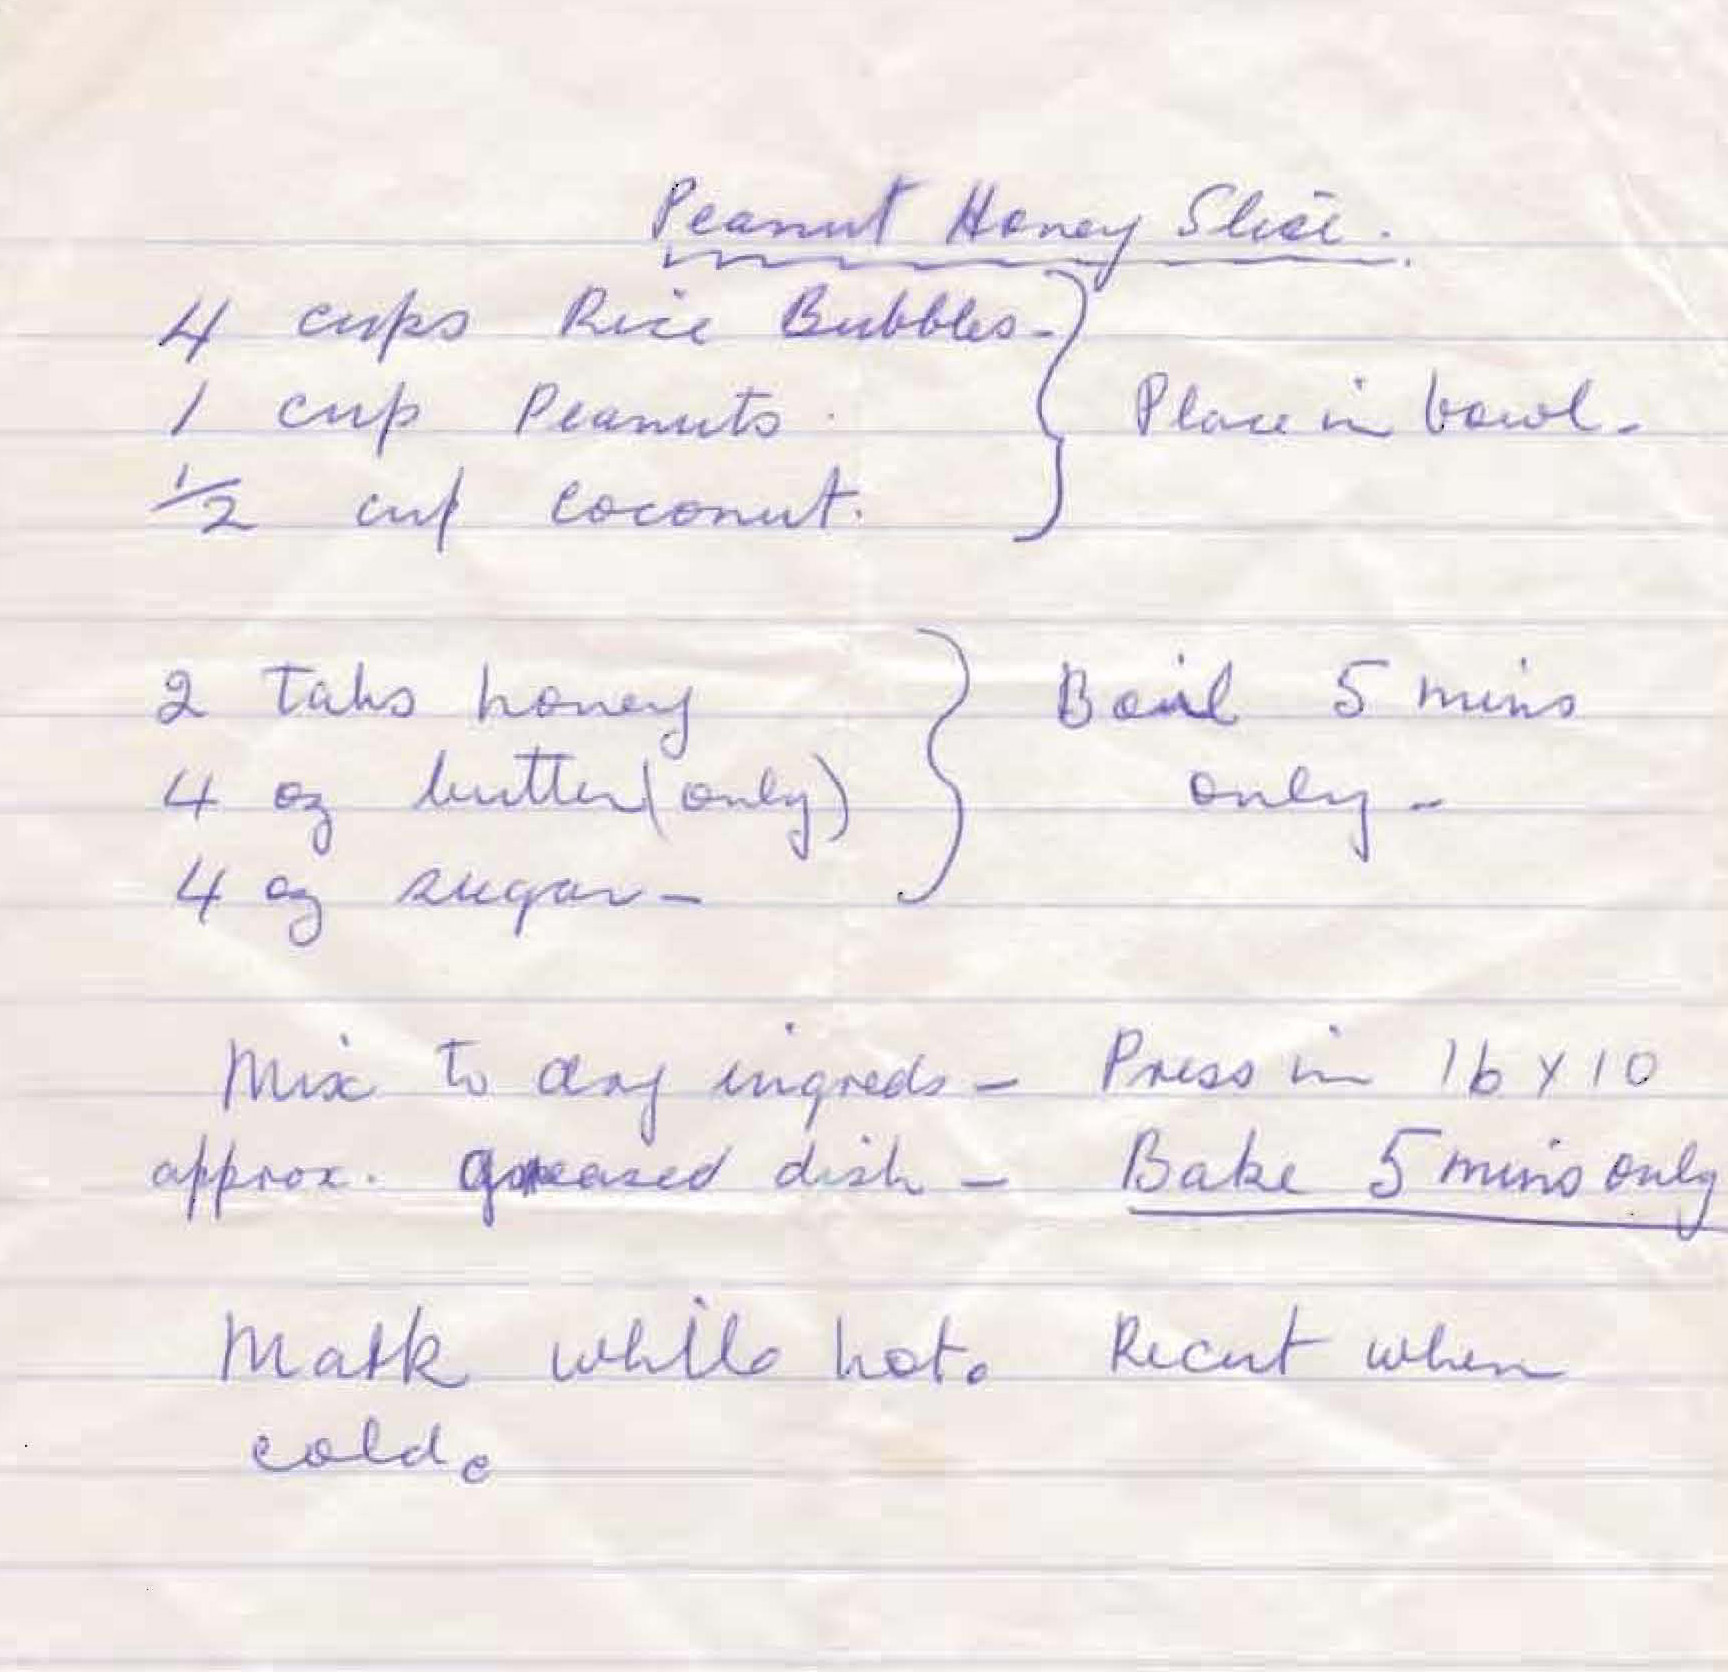 Peanut Honey Slice.
4 cups Rice Bubbles-
1 cup Peanuts. } Place in bowl-
1/2 cup coconut.
2 tabs honey } Boil 5 mins
4 oz butter (only) only-
4 oz sugar-
Mix to dry ingreds- Press in 16 x 10
approx. greased dish- Bake 5 mins only
Mark while hot. Recut when
cold.